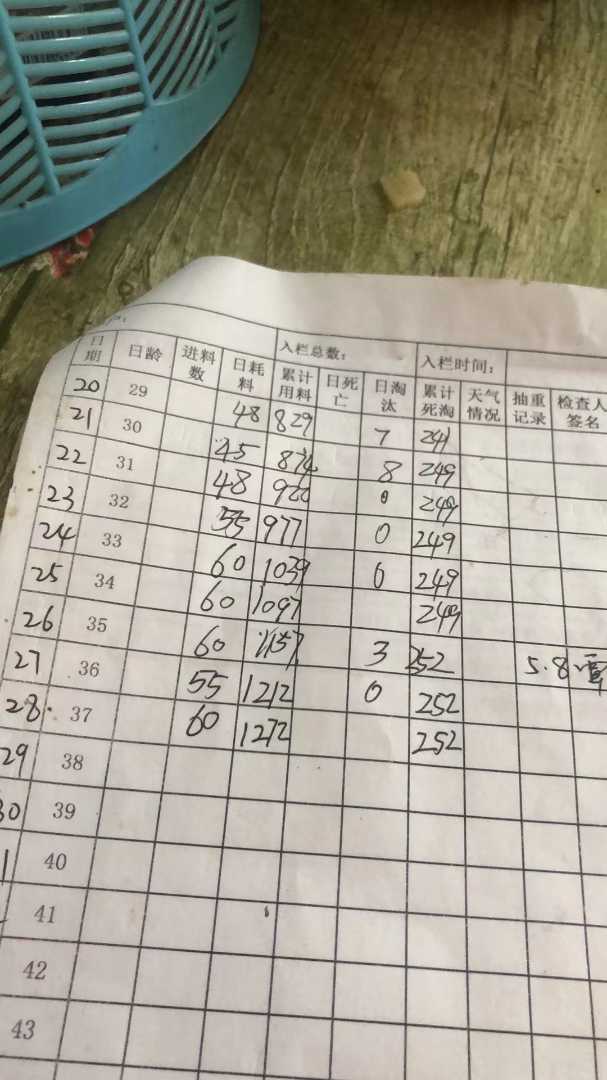 入栏总数： 入栏时间：
日期 日龄 进料数 日耗料 累计用料 日死亡 日淘汰 累计死淘 天气情况 抽重记录 检查人签名
20 29 48 829 7 241
21 30 45 874 8 249
22 31 48 922 0 249
23 32 55 977 0 249
24 33 60 1039 0 249
25 34 60 1097 249
26 35 60 1157 3 252 5.8
27 36 55 1212 0 252
28. 37 60 1272 252
29 38
30 39
1 40
41
42
43